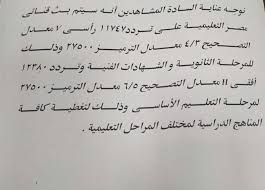 نوجه عناية السادة المشاهدين أنه سيتم بث قناتى
مصر التعليمية على تردد ١١٧٤٧ رأسى ٧ معدل
التصحيح ٤/٣ معدل الترميز ٢٧٥٠٠ وذلك
للمرحلة الثانوية و الشهادات الفنية وتردد ١٢٣٨٠
أفقى ١١ معدل التصحيح ٦/٥ معدل الترميز ٢٧٥٠٠
لمرحلة التعليم الأساسى وذلك لتغطية كافة
المناهج الدراسية لمختلف المراحل التعليمية .